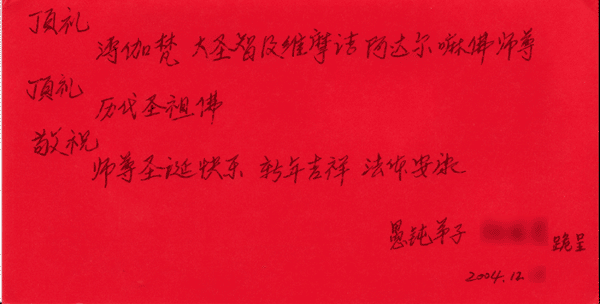 顶礼
薄伽梵 大圣智及维摩诘 阿达尔嘛佛师尊
顶礼
历代圣祖佛
敬祝
师尊圣诞快乐 新年吉祥 法体安康
愚钝弟子 跪呈
2004.12